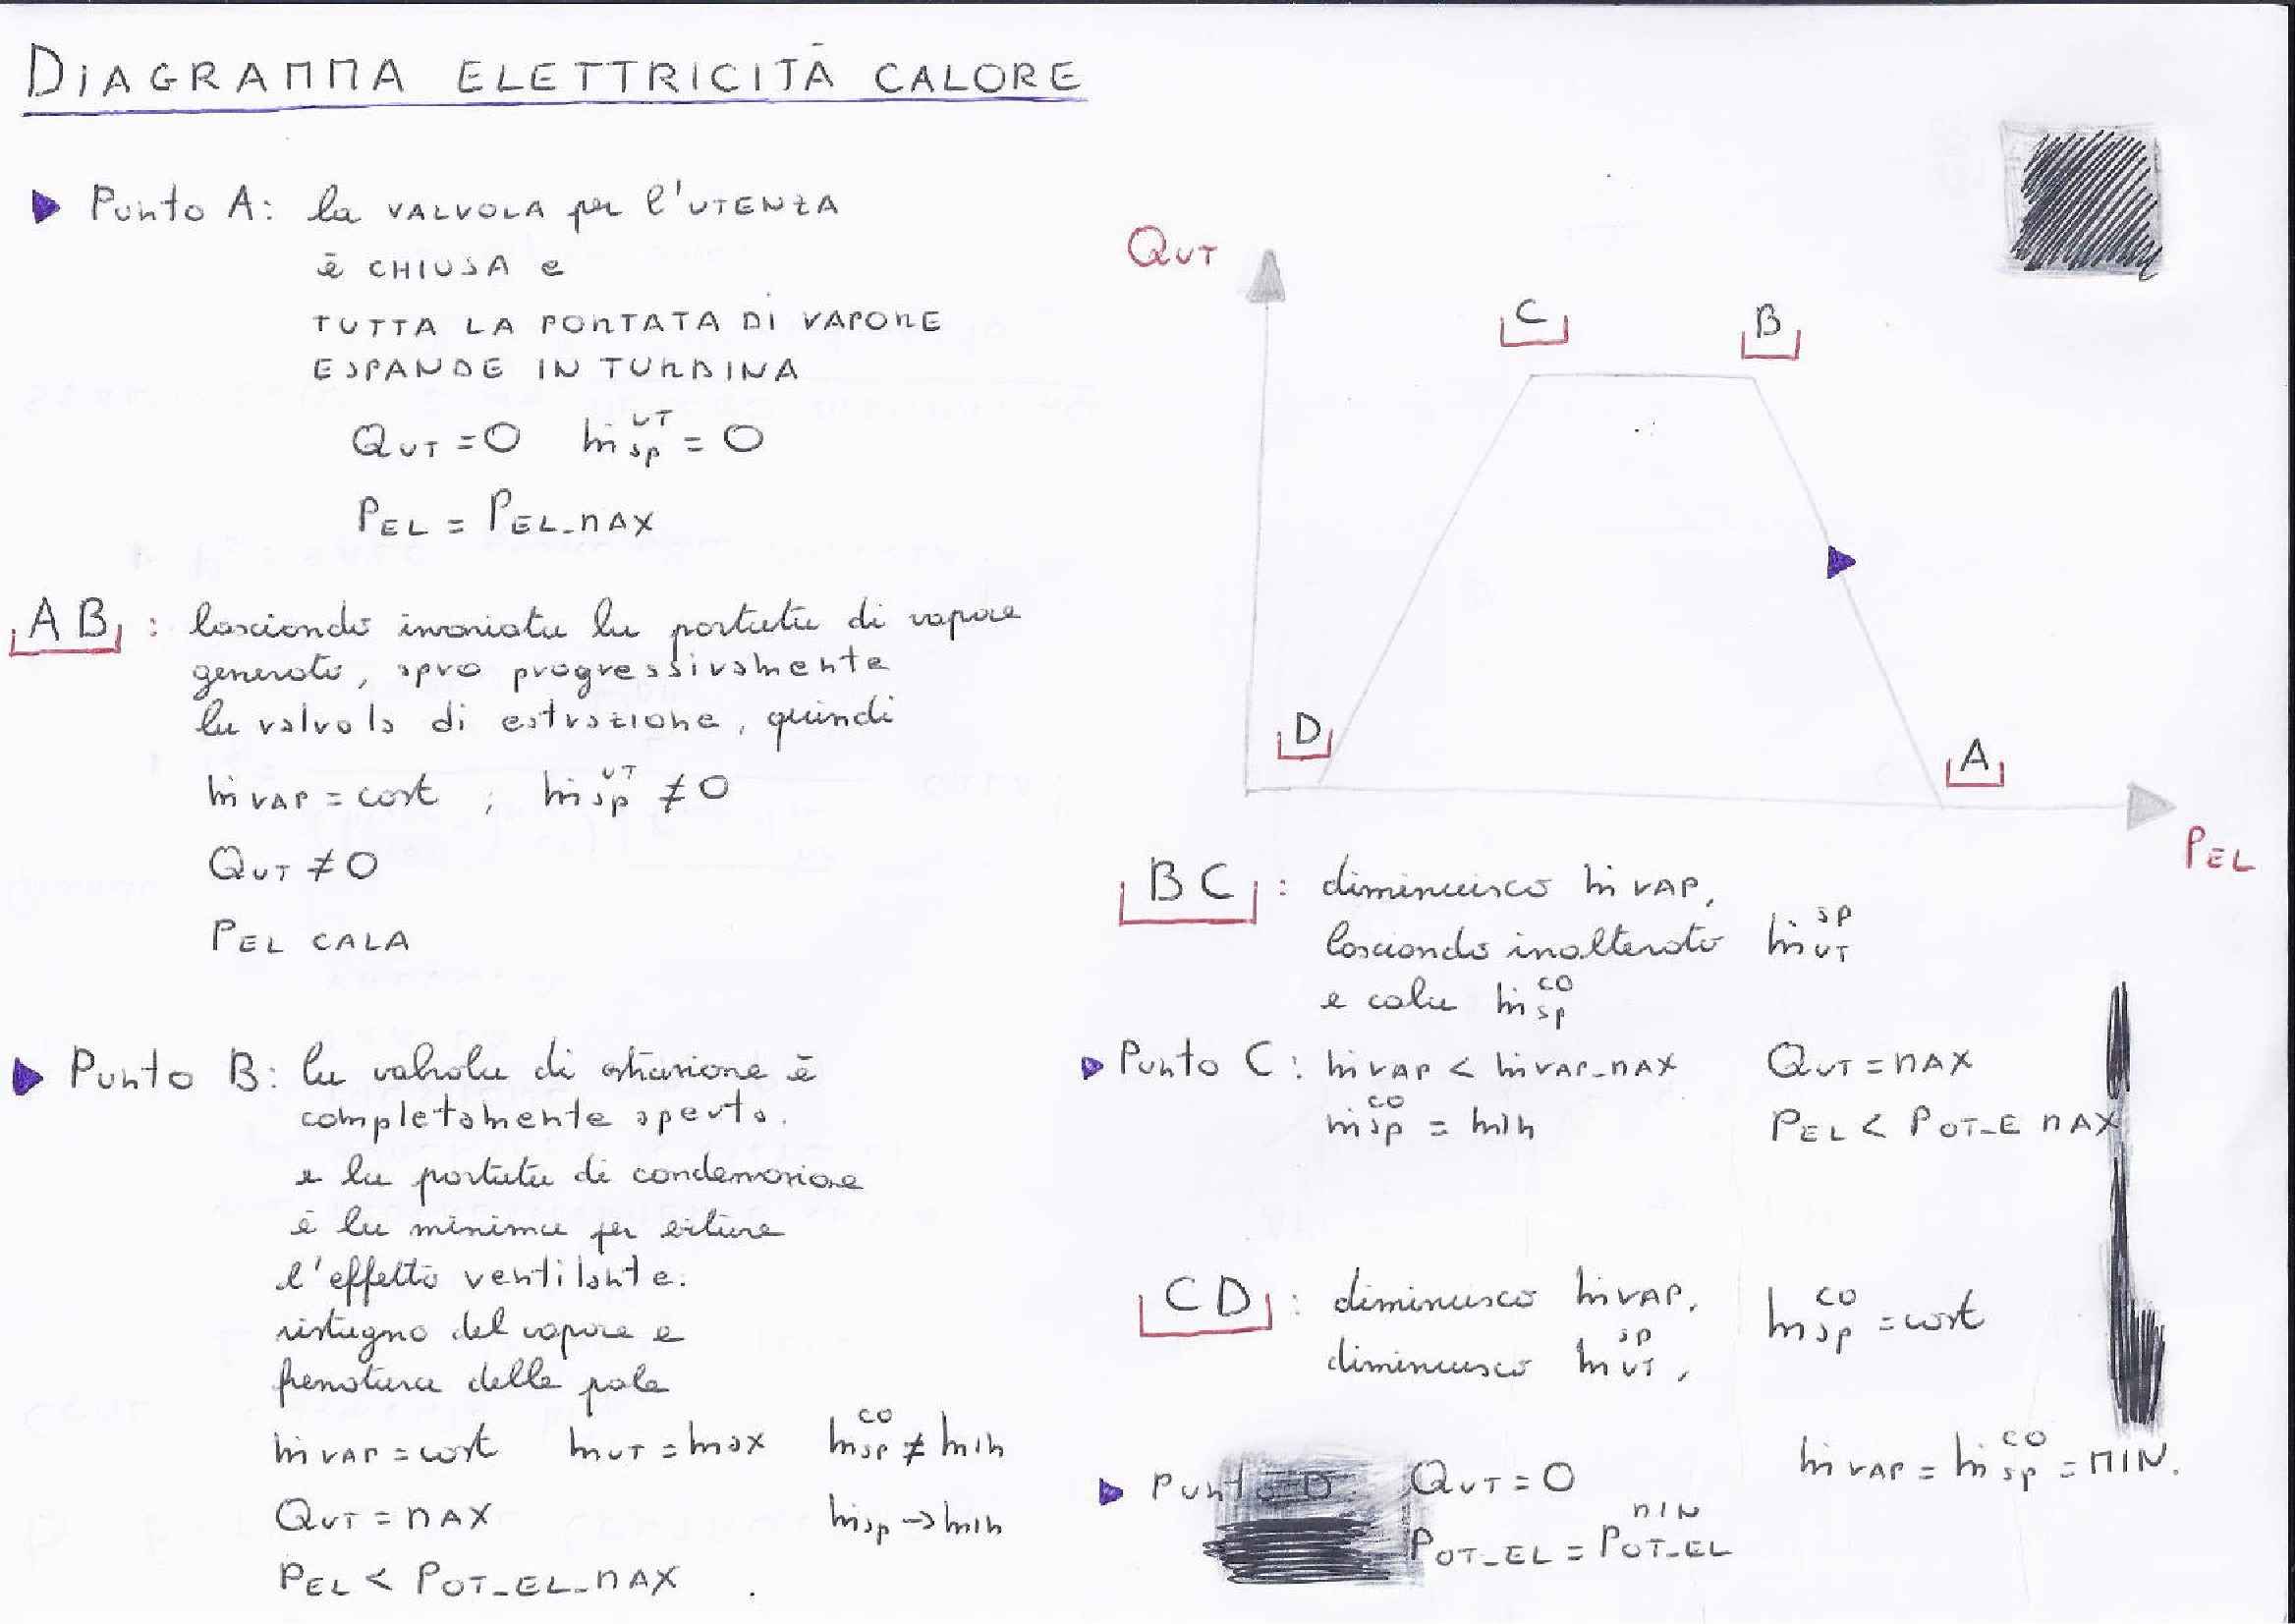 DIAGRAMMA ELETTRICITÀ CALORE
Punto A: la VALVOLA per l'UTENZA
è CHIUSA e
TUTTA LA PORTATA DI VAPORE
ESPANDE IN TURBINA
QUT = 0 ṁsp^UT = 0
PEL = PEL_MAX
AB : lasciando invariata la portata di vapore
generato, apro progressivamente
la valvola di estrazione, quindi
ṁVAP = cost ; ṁsp^UT ≠ 0
QUT ≠ 0
PEL CALA
Punto B: la valvola di estrazione è
completamente aperta.
e la portata di condensazione
è la minima per evitare
l'effetto ventilante:
ristagno del vapore e
frenatura delle pale
ṁVAP = cost ṁUT = max ṁsp^CO ≠ min
QUT = MAX ṁsp → min
PEL < POT_EL_MAX .
QUT
C
B
D
A
PEL
BC : diminuisco ṁVAP,
lasciando inalterato ṁUT^SP
e cala ṁsp^CO
Punto C: ṁVAP < ṁVAP_MAX QUT = MAX
ṁsp^CO = min PEL < POT_E MAX
CD : diminuisco ṁVAP, ṁsp^CO = cost
diminuisco ṁUT^SP,
Punto D: QUT = 0 ṁVAP = ṁsp^CO = MIN.
POT_EL = POT_EL^MIN